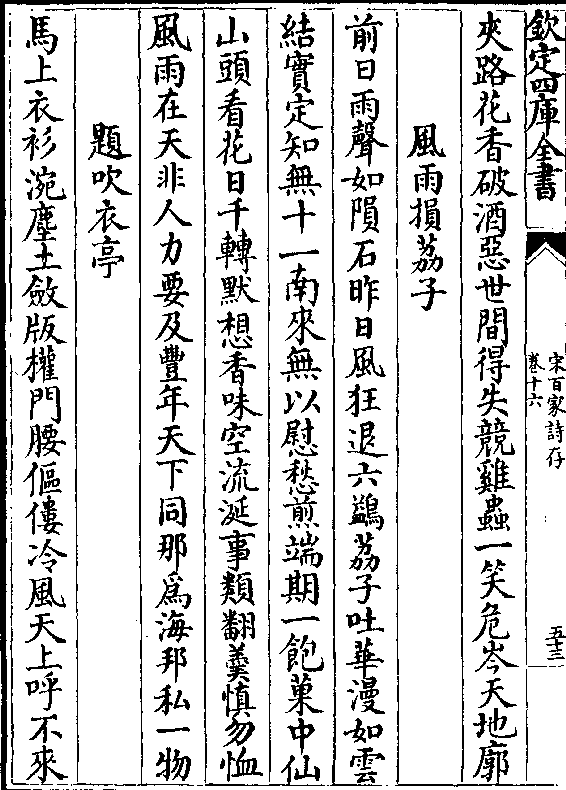 欽定四庫全書
宋百家詩存
卷十六
五十三
夾路花香破酒惡世間得失競雞蟲一笑危岑天地廓
風雨損荔子
前日雨聲如隕石昨日風狂退六鷁荔子吐華漫如雲
結實定知無十一南來無以慰愁煎端期一飽菓中仙
山頭看花日千轉默想香味空流涎事類翻羹慎勿恤
風雨在天非人力要及豐年天下同那爲海邦私一物
題吹衣亭
馬上衣衫涴塵土斂版權門腰傴僂冷風天上呼不來